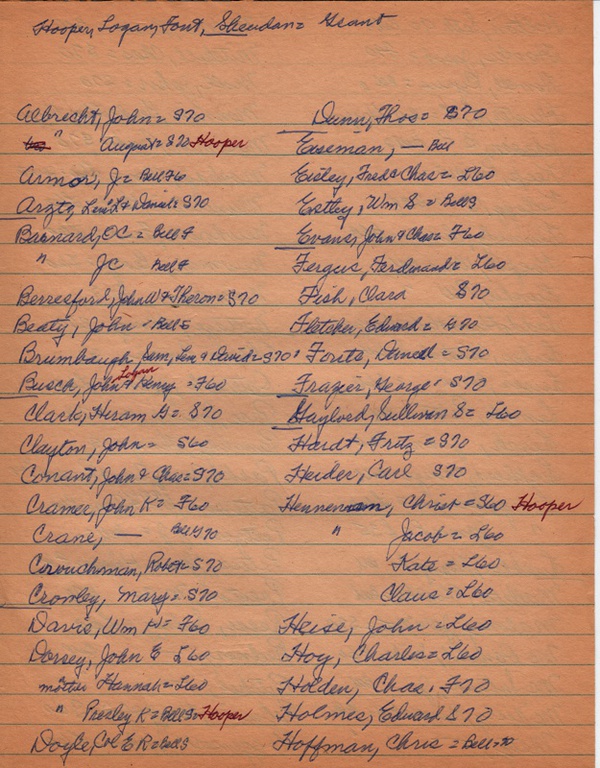 Hooper, Logan, Font, Sheridan = Grant
Albrecht, John = S70
" August = S70 Hooper
Armor, J = Bell F60
Arzte, Levi L & Daniel = S70
Barnard, OC = Bell F
" JC Bell F
Berresford, John W & Theron = S70
Beaty, John = Bell S
Brumbaugh Sam, Levi & David = S70
Busch, John & Henry = F60
Logan
Clark, Hiram G = S70
Clayton, John = S60
Conant, John & Chas = S70
Cramer, John K = F60
Crane, — Bell S70
Corouchman, Robt = S70
Crowley, Mary = S70
Davis, Wm H = F60
Dorsey, John E L60
mother Hannah = L60
" Presley K = Bell S = Hooper
Doyle, Col E R = Bell S
Dunn, Thos = S70
Eiseman, — Bell
Eisley, Fred & Chas = L60
Estley, Wm S = Bell S
Evans, John & Chas = F60
Fergus, Ferdinand = L60
Fish, Clara S70
Fletcher, Edward = S70
Forits, Daniell = S70
Frazier, George = S70
Gaylord, Sullivan S = L60
Hardt, Fritz = S70
Heider, Carl S70
Henneman, Christ = S60 Hooper
" Jacob = L60
Kate = L60
Claus = L60
Heise, John = L60
Hoy, Charles = L60
Holden, Chas. F70
Holmes, Edward S70
Hoffman, Chris = Bell = 70